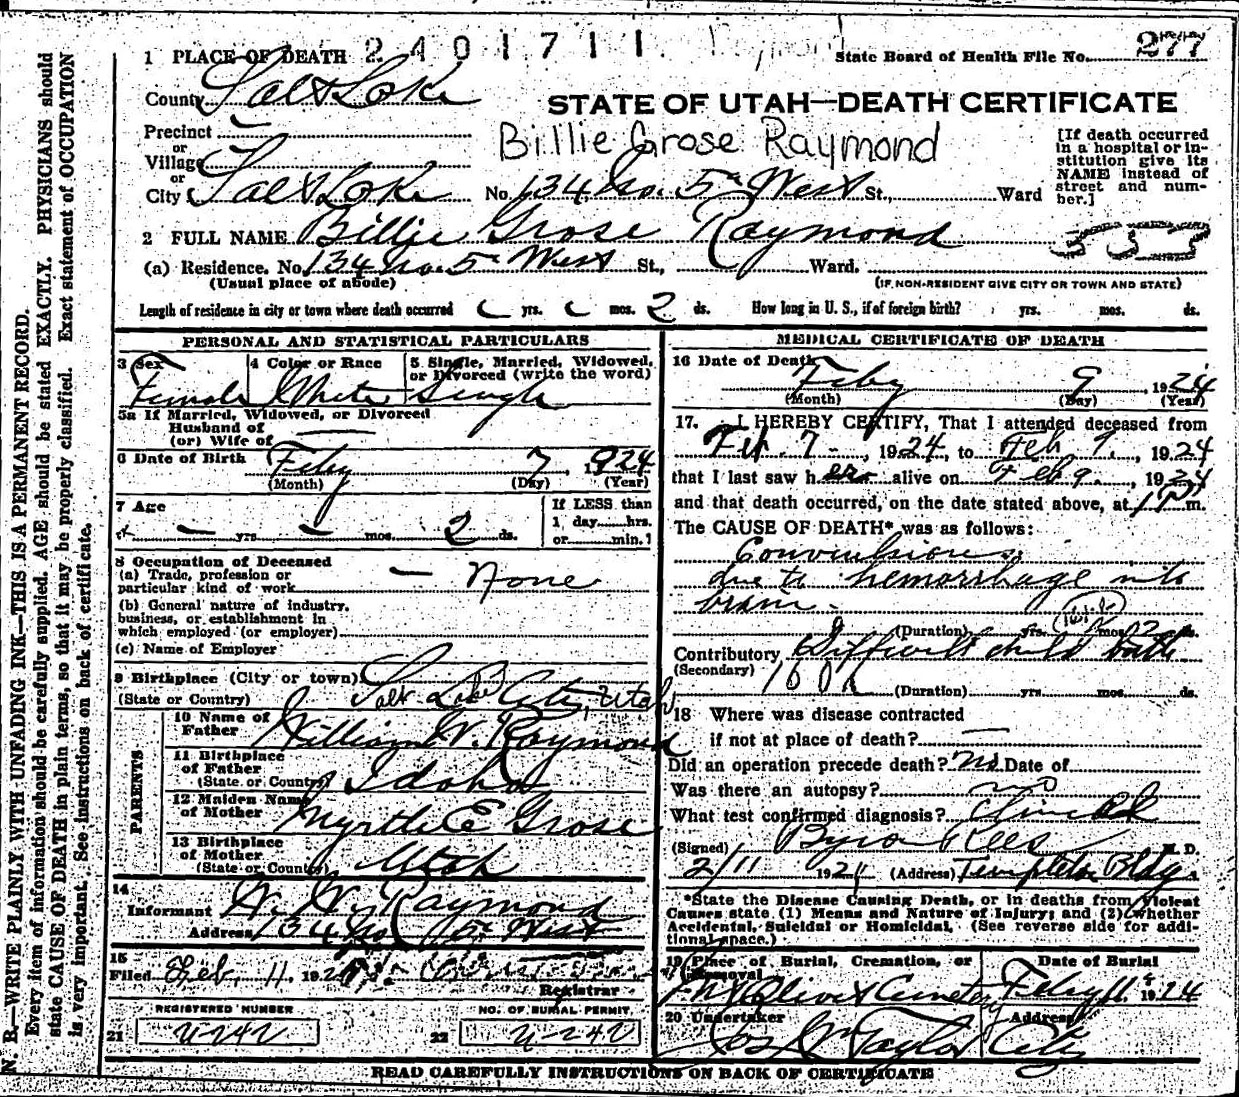 1 PLACE OF DEATH 2 4 0 1 7 1 1 Raymond State Board of Health File No. 277
County Salt Lake
STATE OF UTAH—DEATH CERTIFICATE
Precinct —
or
Village —
or
City Salt Lake No. 134 No. 5th West St., Ward
Billie Grose Raymond
[If death occurred
in a hospital or in-
stitution give its
NAME instead of
street and num-
ber.]
2 FULL NAME Billie Grose Raymond
(a) Residence. No. 134 No. 5th West St., Ward.
(Usual place of abode) (IF NON-RESIDENT GIVE CITY OR TOWN AND STATE)
Length of residence in city or town where death occurred yrs. mos. 2 ds. How long in U. S., if of foreign birth? yrs. mos. ds.
PERSONAL AND STATISTICAL PARTICULARS
3 Sex
Female
4 Color or Race
White
5 Single, Married, Widowed,
or Divorced (write the word)
Single
5a If Married, Widowed, or Divorced
Husband of
(or) Wife of —
6 Date of Birth
Feby 7, 1924
(Month) (Day) (Year)
7 Age
— yrs. — mos. 2 ds.
If LESS than
1 day......hrs.
or......min.?
8 Occupation of Deceased
(a) Trade, profession or
particular kind of work — None
(b) General nature of industry,
business, or establishment in
which employed (or employer)
(c) Name of Employer
9 Birthplace (City or town)
(State or Country) Salt Lake City, Utah
PARENTS
10 Name of
Father William W. Raymond
11 Birthplace
of Father
(State or Country) Idaho
12 Maiden Name
of Mother Myrtle E Grose
13 Birthplace
of Mother
(State or Country) Utah
14
Informant W. W. Raymond
Address 134 No 5th West
15
Filed Feb. 11. 192
Registrar
REGISTERED NUMBER
21 U-242
NO. OF BURIAL PERMIT
22 U-242
MEDICAL CERTIFICATE OF DEATH
16 Date of Death
Feby 9 1924
(Month) (Day) (Year)
17. I HEREBY CERTIFY, That I attended deceased from
Feb. 7-, 1924, to Feb 9., 1924
that I last saw her alive on Feb 9., 1924
and that death occurred, on the date stated above, at 1 P m.
The CAUSE OF DEATH* was as follows:
Convulsions
due to hemorrhage into
brain.
(Duration) yrs. mos. 2 ds.
Contributory Difficult child birth
(Secondary)
(Duration) yrs. mos. ds.
18 Where was disease contracted
if not at place of death? —
Did an operation precede death? No Date of
Was there an autopsy? no
What test confirmed diagnosis? Clinical
(Signed) Byron Rees M. D.
2/11 1924 (Address) Templeton Bldg.
*State the Disease Causing Death, or in deaths from Violent
Causes state (1) Means and Nature of Injury; and (2) whether
Accidental, Suicidal or Homicidal. (See reverse side for addi-
tional space.)
19 Place of Burial, Cremation, or
Removal
Mt Olivet Cemetery
Date of Burial
Feby 11. 1924
20 Undertaker
Jos Wm Taylor
Address
City
READ CAREFULLY INSTRUCTIONS ON BACK OF CERTIFICATE
N. B.—WRITE PLAINLY WITH UNFADING INK—THIS IS A PERMANENT RECORD.
Every item of information should be carefully supplied. AGE should be stated EXACTLY. PHYSICIANS should
state CAUSE OF DEATH in plain terms, so that it may be properly classified. Exact statement of OCCUPATION
is very important. See instructions on back of certificate.